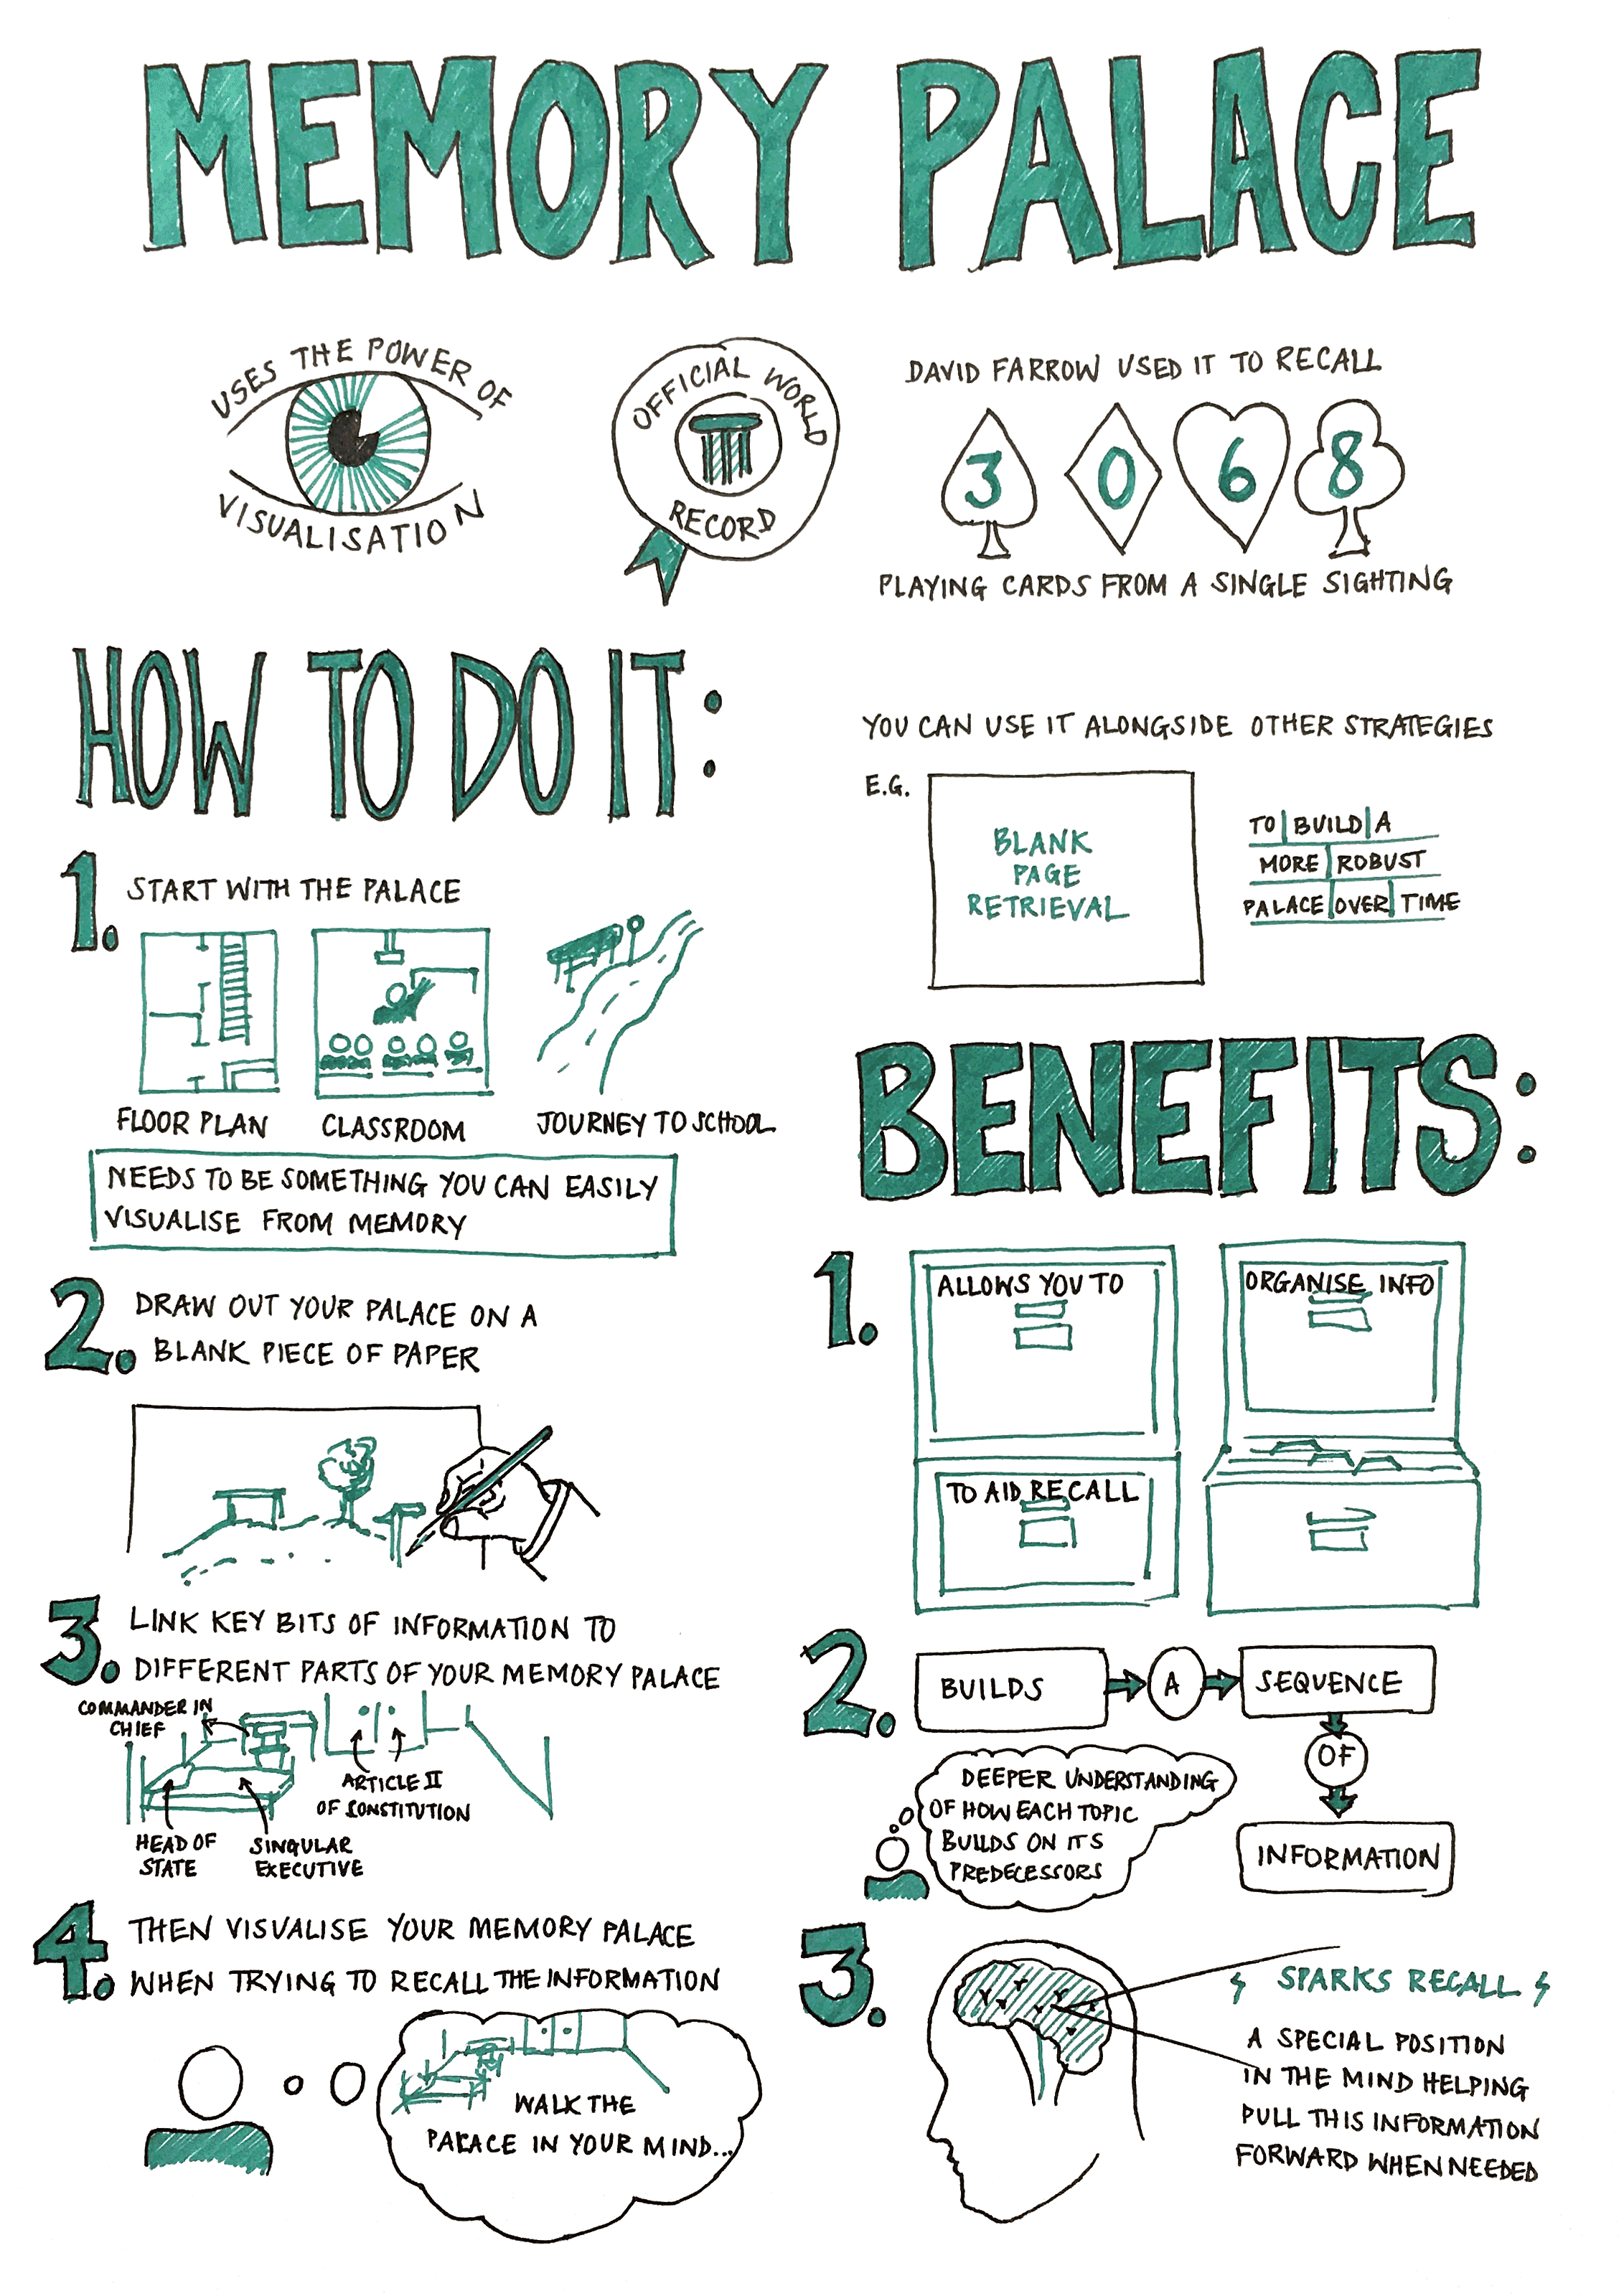 MEMORY PALACE
USES THE POWER OF
VISUALISATION
OFFICIAL WORLD
RECORD
DAVID FARROW USED IT TO RECALL
3 0 6 8
PLAYING CARDS FROM A SINGLE SIGHTING
HOW TO DO IT:
1. START WITH THE PALACE
FLOOR PLAN
CLASSROOM
JOURNEY TO SCHOOL
NEEDS TO BE SOMETHING YOU CAN EASILY
VISUALISE FROM MEMORY
2. DRAW OUT YOUR PALACE ON A
BLANK PIECE OF PAPER
3. LINK KEY BITS OF INFORMATION TO
DIFFERENT PARTS OF YOUR MEMORY PALACE
COMMANDER IN
CHIEF
ARTICLE II
OF CONSTITUTION
HEAD OF
STATE
SINGULAR
EXECUTIVE
4. THEN VISUALISE YOUR MEMORY PALACE
WHEN TRYING TO RECALL THE INFORMATION
WALK THE
PALACE IN YOUR MIND...
YOU CAN USE IT ALONGSIDE OTHER STRATEGIES
E.G.
BLANK
PAGE
RETRIEVAL
TO BUILD A
MORE ROBUST
PALACE OVER TIME
BENEFITS:
1. ALLOWS YOU TO
ORGANISE INFO
TO AID RECALL
2. BUILDS A SEQUENCE
OF
INFORMATION
DEEPER UNDERSTANDING
OF HOW EACH TOPIC
BUILDS ON ITS
PREDECESSORS
3. SPARKS RECALL
A SPECIAL POSITION
IN THE MIND HELPING
PULL THIS INFORMATION
FORWARD WHEN NEEDED